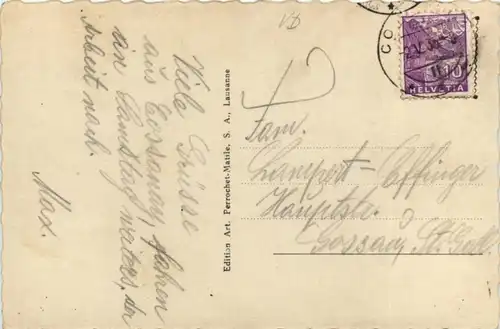 Viele Grüsse
aus Cossonay, fahren
am Samstag weiters, der
Arbeit nach.
Max.
Edition Art. Perrochet-Matile. S. A., Lausanne
Fam.
Lampert-Effinger
Hauptstr.
Gossau, St. Gall.
CO
10
HELVETIA